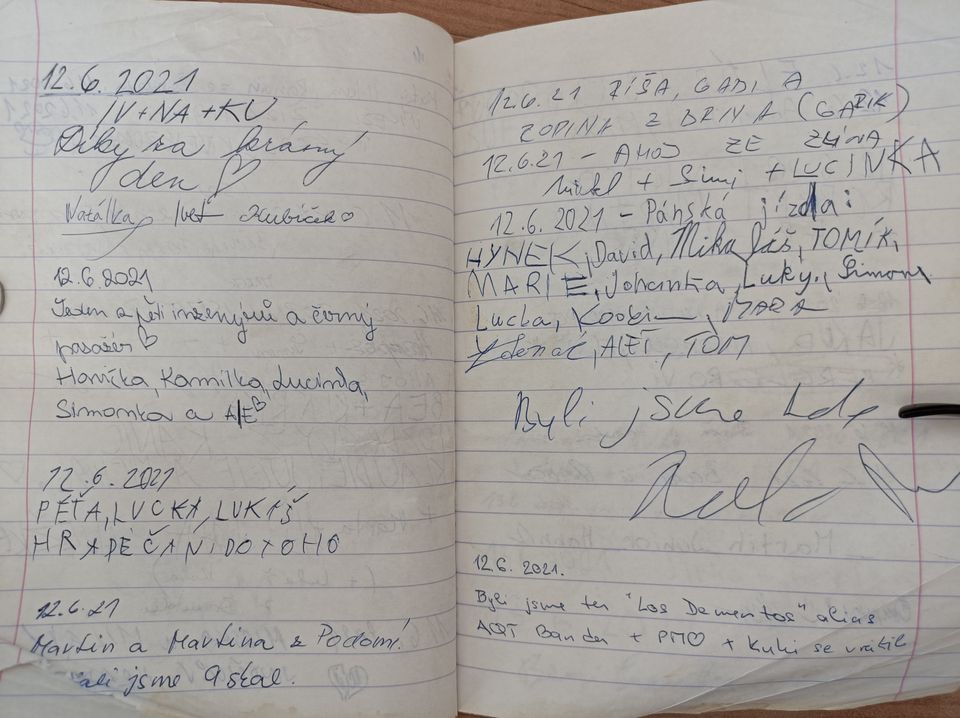 12.6.2021
IV+NA+KU
Díky za krásný
den ♡
Natálka Ivet Kubíček ♡
12.6.2021
Jeden z pěti inženýrů a černý
pasažér ♡
Hanička, Kamilka, Lucinda,
Simonka a
12.6.2021
PÉŤA, LUCKA, LUKÁŠ
HRADEČANI DO TOHO
12.6.21
Martin a Martina z Podomí.
jsme 9 skal.
12.6.21 RÍŠA, GABI A
RODINA Z BRNA (GARIK)
12.6.21 - AHOJ ZE ZLÍNA
Michel + Simi + LUCINKA
12.6.2021 - Pánská jízda:
HYNEK, David, Mikoláš, TOMÍK,
MARIE, Johanka, Luky, Simona
Lucka, MARA
Zdenač, ALEŤ, TOM
Byli jsme tady
12.6.2021.
Byli jsme ten "Los Dementos" alias
AQT Banda + PMO + Kuki se vrátil